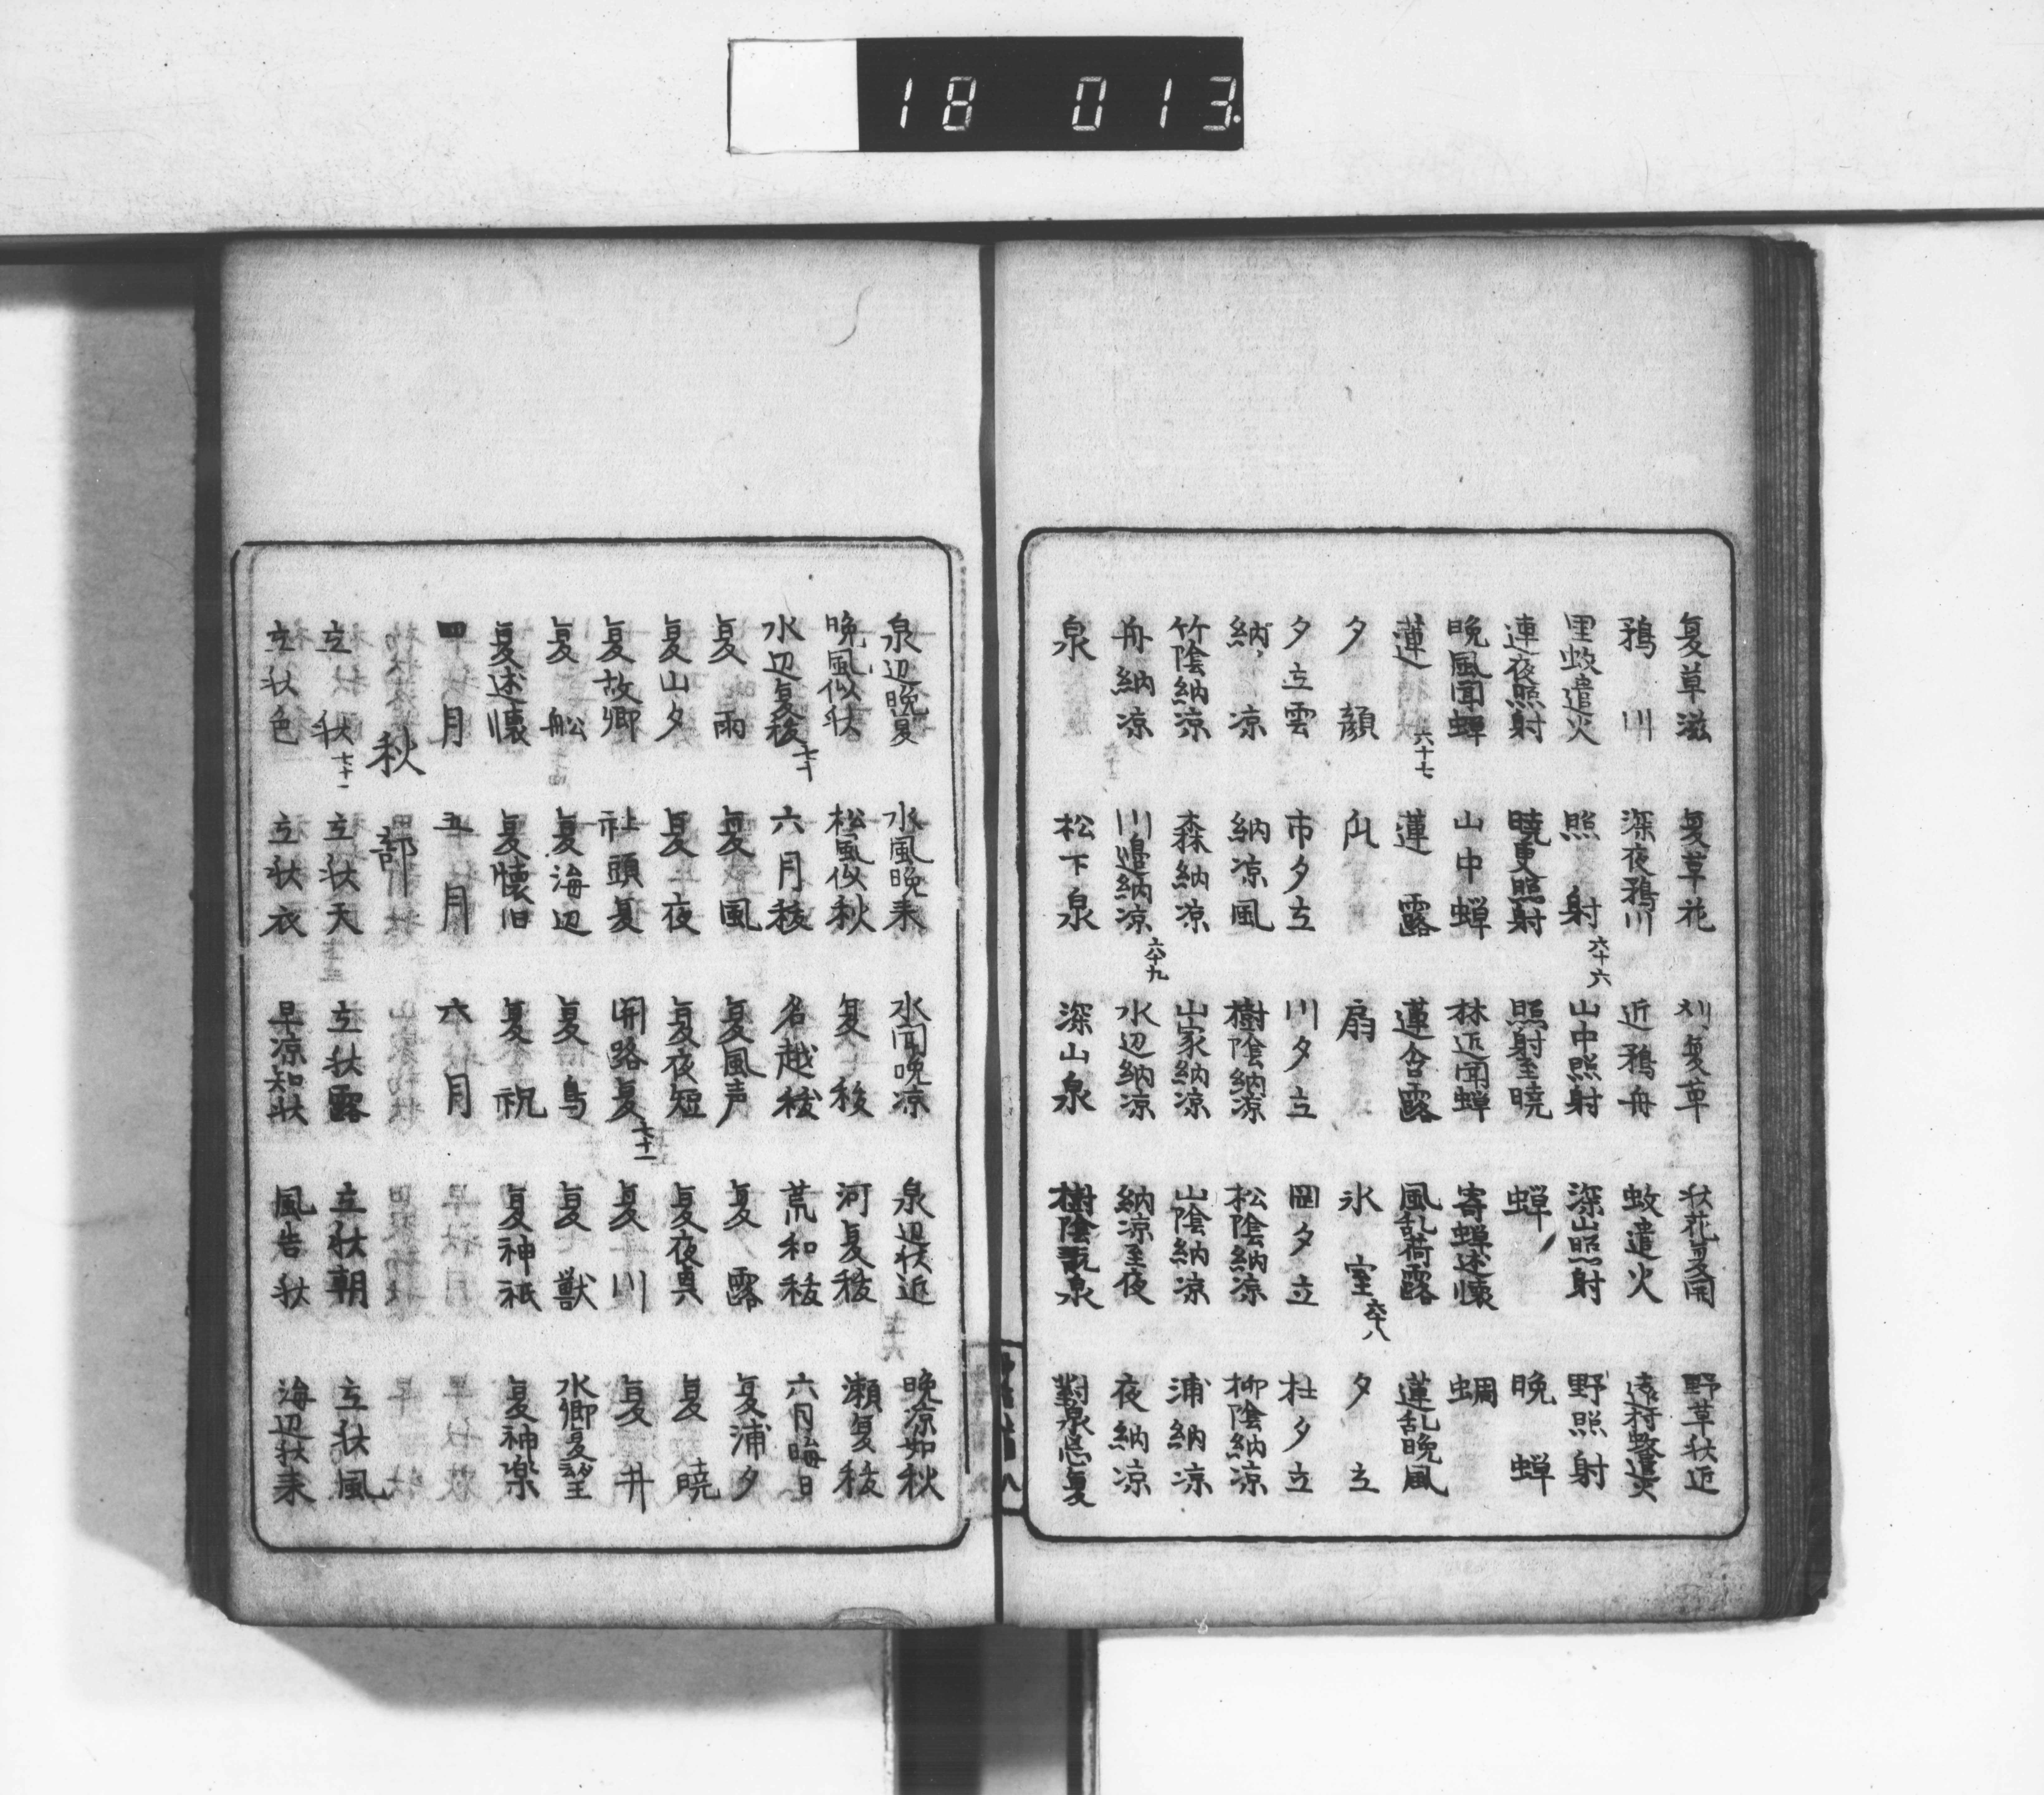 18 013
夏草滋 夏草花 刈夏草 秋花夏開 野草秋近
鵜川 深夜鵜川 近鵜舟 蚊遣火 遠村蚊遣火
里蚊遣火 照射 六十六 山中照射 深山照射 野照射
連夜照射 暁更照射 照射至暁 蝉 晩蝉
晩風聞蝉 山中蝉 林近聞蝉 寄蝉述懐 蜩
蓮 六十七 蓮露 蓮含露 風乱荷露 蓮乱晩風
夕顔 扇 氷室 六十八 夕立
夕立雲 市夕立 川夕立 岡夕立 杜夕立
納凉 納凉風 樹陰納凉 松陰納凉 柳陰納凉
竹陰納凉 森納凉 山家納凉 山陰納凉 浦納凉
舟納凉 川邉納凉 六十九 水辺納凉 納凉至夜 夜納凉
泉 松下泉 深山泉 樹陰翫泉 對泉忘夏
泉辺晩夏 水風晩来 水聞晩凉 泉辺秋近 晩凉如秋
晩風似秋 松風似秋 夏秡 河夏秡 瀬夏秡
水辺夏秡 七十 六月秡 名越秡 荒和秡 六月晦日
夏雨 夏風 夏風声 夏露 夏浦夕
夏山夕 夏夜 夏夜短 夏夜具 夏暁
夏故郷 社頭夏 開路夏 七十一 夏川 夏井
夏船 夏海辺 夏鳥 夏獣 水郷夏望
夏述懐 夏懐旧 夏祝 夏神祇 夏神楽
四月 五月 六月
秋部
立秋 七十一 立秋天 立秋露 立秋朝 立秋風
立秋色 立秋衣 早凉知秋 風告秋 海辺秋来